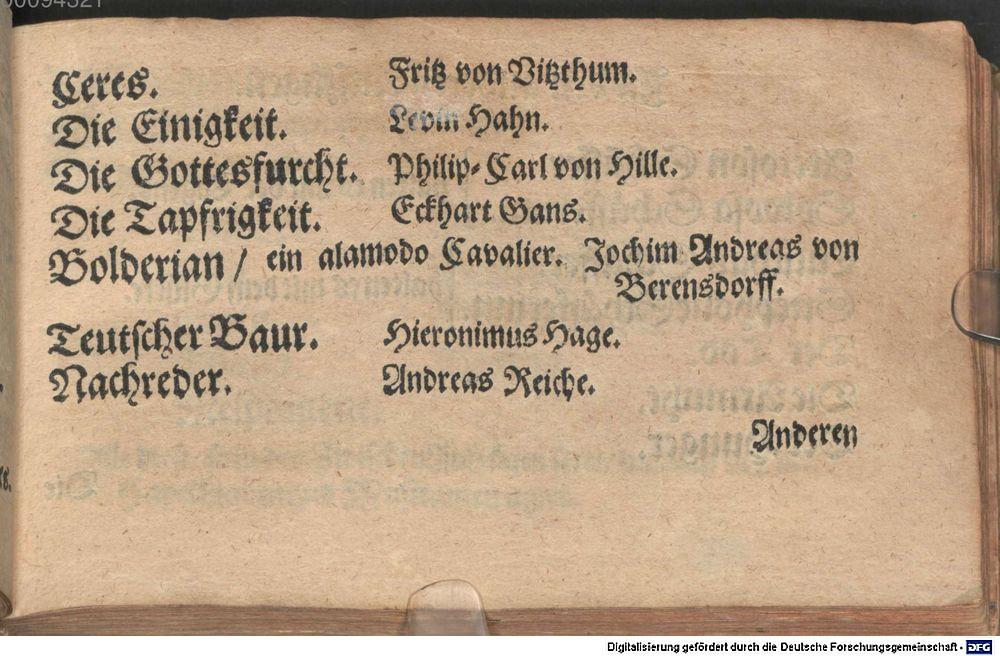 Ceres. Fritz von Vitzthum.
Die Einigkeit. Levin Hahn.
Die Gottesfurcht. Philip-Carl von Hille.
Die Tapfrigkeit. Eckhart Gans.
Bolderian / ein alamodo Cavalier. Jochim Andreas von
Berensdorff.
Teutscher Baur. Hieronimus Hage.
Nachreder. Andreas Reiche.
Anderen
Digitalisierung gefördert durch die Deutsche Forschungsgemeinschaft - DFG